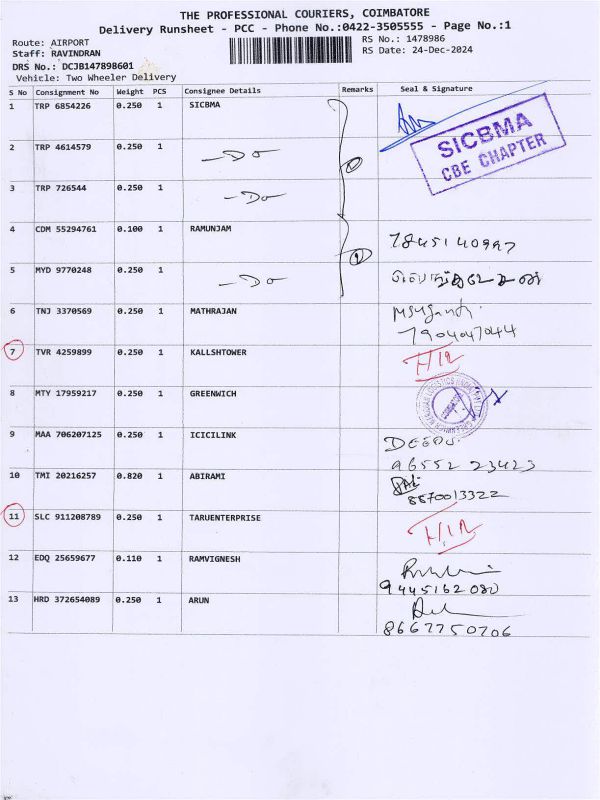 THE PROFESSIONAL COURIERS, COIMBATORE
Delivery Runsheet - PCC - Phone No.:0422-3505555 - Page No.:1
Route: AIRPORT
RS No.: 1478986
Staff: RAVINDRAN
RS Date: 24-Dec-2024
DRS No.: DCJB147898601
Vehicle: Two Wheeler Delivery
S No Consignment No Weight PCS Consignee Details Remarks Seal & Signature
1 TRP 6854226 0.250 1 SICBMA
SICBMA
CBE CHAPTER
2 TRP 4614579 0.250 1 -Do
3 TRP 726544 0.250 1 -Do
4 CDM 55294761 0.100 1 RAMUNJAM 7845140997
5 MYD 9770248 0.250 1 -Do
6 TNJ 3370569 0.250 1 MATHRAJAN
7904047044
7 TVR 4259899 0.250 1 KALLSHTOWER
8 MTY 17959217 0.250 1 GREENWICH
9 MAA 706207125 0.250 1 ICICILINK DEEPU
96552 23423
10 TMI 20216257 0.820 1 ABIRAMI
8870013322
11 SLC 911208789 0.250 1 TARUENTERPRISE
12 EDQ 25659677 0.110 1 RAMVIGNESH
9445162080
13 HRD 372654089 0.250 1 ARUN
8667750706